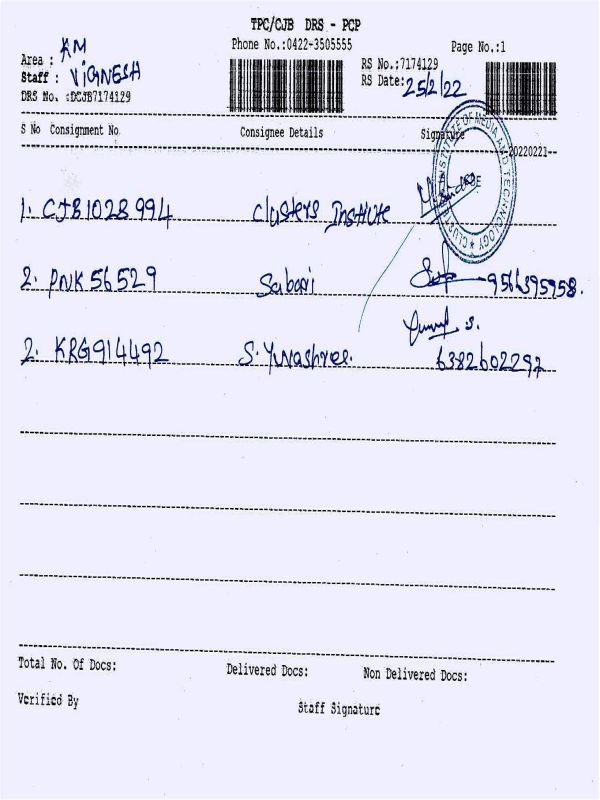 TPC/CJB DRS - PCP
Phone No.:0422-3505555
Page No.:1
Area : KM
Staff : VIGNESH
DRS No. :DCJB7174129
RS No.:7174129
RS Date: 25/2/22
S No Consignment No Consignee Details Signature
20220221--
INSTITUTE OF MEDIA AND TECHNOLOGY ★ CLUS
1. CJB1028994 Clusters Institute
2. PNK56529 Sabari 9566395958.
2. KRG914492 S. Yuvashree. 6382602297
Total No. Of Docs: Delivered Docs: Non Delivered Docs:
Verified By Staff Signature